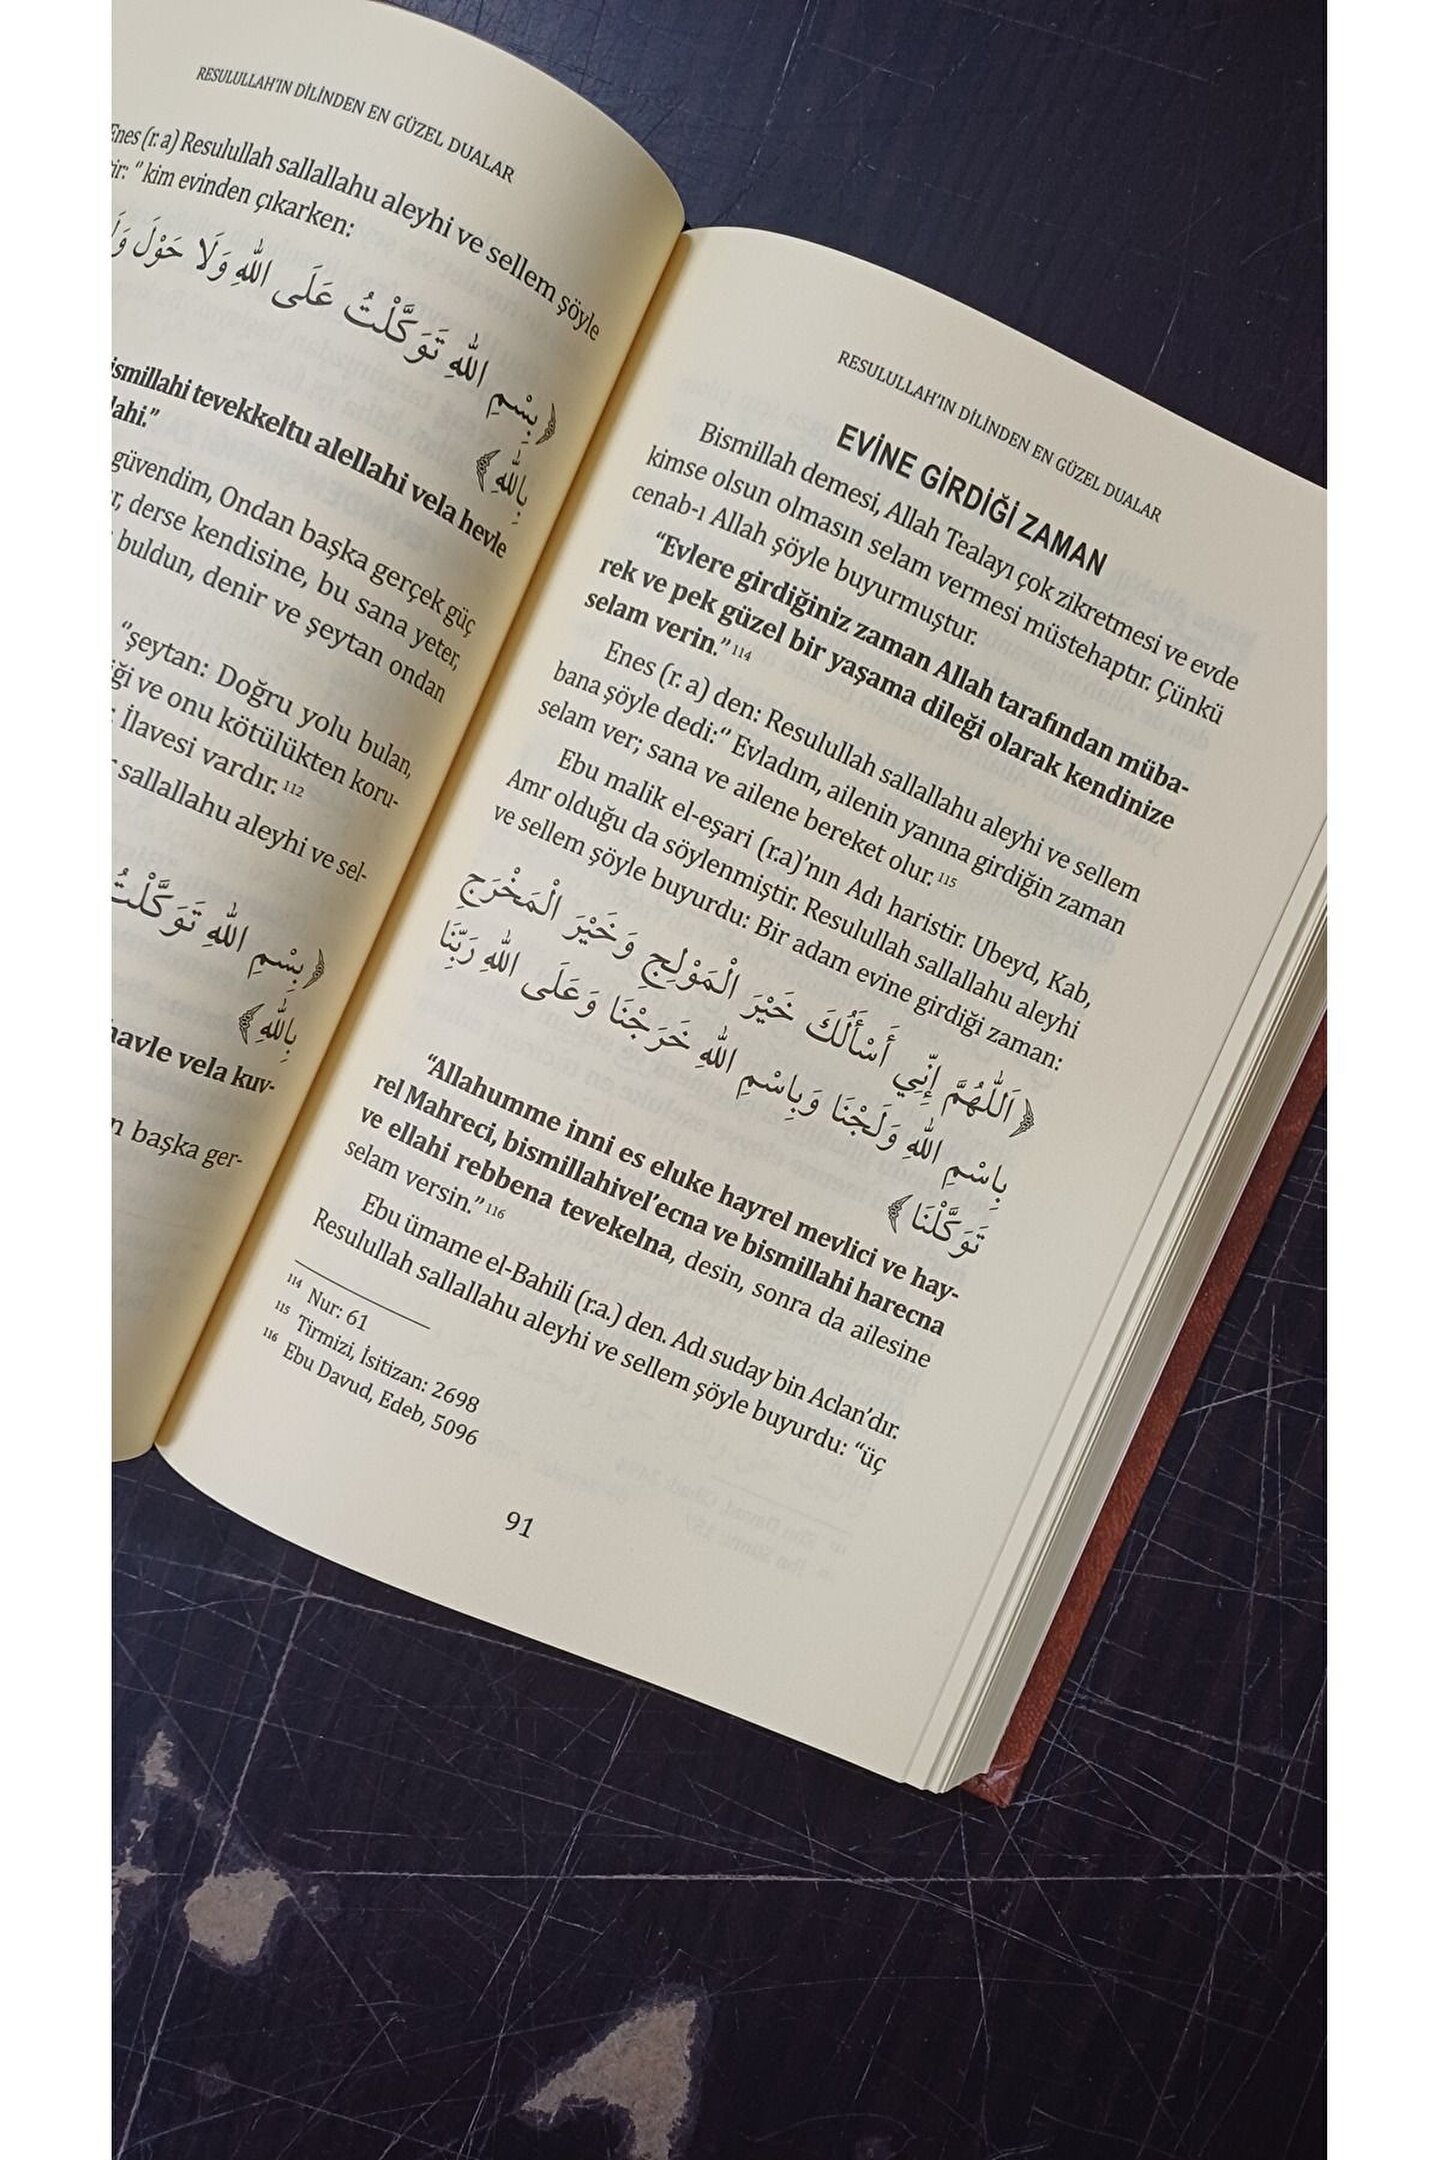 RESULULLAH'IN DİLİNDEN EN GÜZEL DUALAR
Enes (r. a) Resulullah sallallahu aleyhi ve sellem şöyle
"kim evinden çıkarken:
﴿بِسْمِ اللّٰهِ تَوَكَّلْتُ عَلَى اللّٰهِ وَلَا حَوْلَ
بِاللّٰهِ﴾
ismillahi tevekkeltu alellahi vela hevle
lahi."
güvendim, Ondan başka gerçek güç
derse kendisine, bu sana yeter,
buldun, denir ve şeytan ondan
"şeytan: Doğru yolu bulan,
ve onu kötülükten koru-
İlavesi vardır. 112
sallallahu aleyhi ve sel-
﴿بِسْمِ اللّٰهِ تَوَكَّلْتُ
بِاللّٰهِ﴾
havle vela kuv-
başka ger-
RESULULLAH'IN DİLİNDEN EN GÜZEL DUALAR
EVİNE GİRDİĞİ ZAMAN
Bismillah demesi, Allah Tealayı çok zikretmesi ve evde
kimse olsun olmasın selam vermesi müstehaptır. Çünkü
cenab-ı Allah şöyle buyurmuştur.
"Evlere girdiğiniz zaman Allah tarafından müba-
rek ve pek güzel bir yaşama dileği olarak kendinize
selam verin." 114
Enes (r. a) den: Resulullah sallallahu aleyhi ve sellem
bana şöyle dedi:" Evladım, ailenin yanına girdiğin zaman
selam ver; sana ve ailene bereket olur. 115
Ebu malik el-eşari (r.a)'nın Adı haristir. Ubeyd, Kab,
Amr olduğu da söylenmiştir. Resulullah sallallahu aleyhi
ve sellem şöyle buyurdu: Bir adam evine girdiği zaman:
﴿اَللّٰهُمَّ إِنِّي أَسْأَلُكَ خَيْرَ الْمَوْلِجِ وَخَيْرَ الْمَخْرَجِ
بِاسْمِ اللّٰهِ وَلَجْنَا وَبِاسْمِ اللّٰهِ خَرَجْنَا وَعَلَى اللّٰهِ رَبِّنَا
تَوَكَّلْنَا﴾
"Allahumme inni es eluke hayrel mevlici ve hay-
rel Mahreci, bismillahivel'ecna ve bismillahi harecna
ve ellahi rebbena tevekelna, desin, sonra da ailesine
selam versin." 116
Ebu ümame el-Bahili (r.a.) den. Adı suday bin Aclan'dır.
Resulullah sallallahu aleyhi ve sellem şöyle buyurdu: "üç
114 Nur: 61
115 Tirmizi, İsitizan: 2698
116 Ebu Davud, Edeb, 5096
91